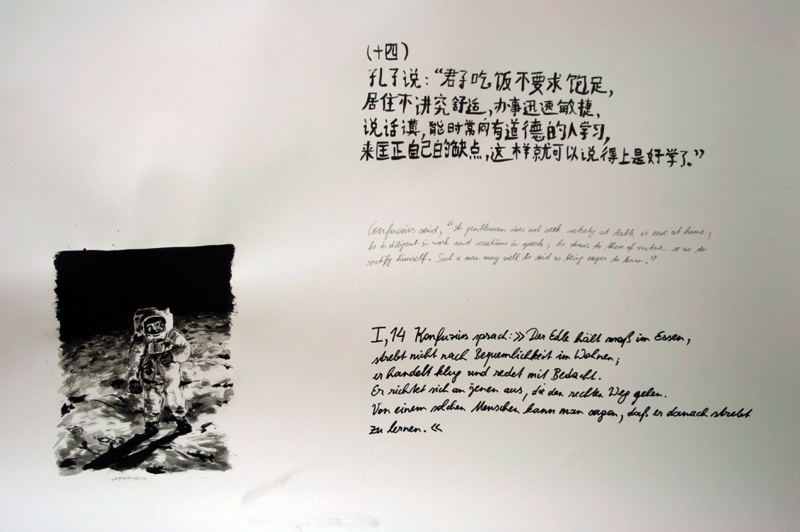 (十四)
孔子说：“君子吃饭不要求饱足，
居住不讲究舒适，办事迅速敏捷，
说话谨，能时常向有道德的人学习，
来匡正自己的缺点，这样就可以说得上是好学了。”
Confucius said, "A gentleman does not seek satiety at table or ease at home;
he is diligent in work and cautious in speech; he draws to those of virtue so as to
rectify himself. Such a man may well be said as being eager to learn."
I,14 Konfuzius sprach: »Der Edle hält maß im Essen,
strebt nicht nach Bequemlichkeit im Wohnen;
er handelt klug und redet mit Bedacht.
Er richtet sich an jenen aus, die den rechten Weg gehen.
Von einem solchen Menschen kann man sagen, daß er danach strebt
zu lernen.«